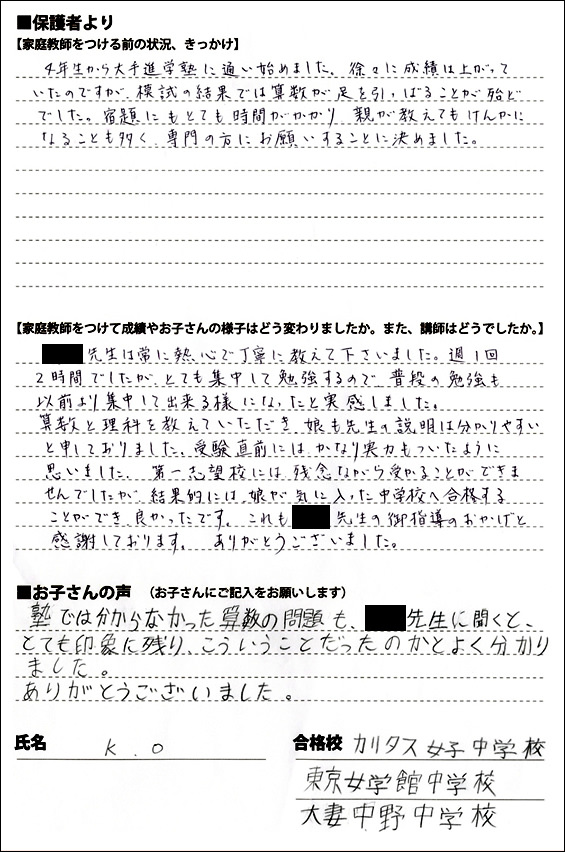 ■保護者より
【家庭教師をつける前の状況、きっかけ】
4年生から大手進学塾に通い始めました。徐々に成績は上がって
いたのですが、模試の結果では算数が足を引っぱることが殆ど
でした。宿題にもとても時間がかかり、親が教えてもけんかに
なることも多く、専門の方にお願いすることに決めました。
【家庭教師をつけて成績やお子さんの様子はどう変わりましたか。また、講師はどうでしたか。】
先生は常に熱心で丁寧に教えて下さいました。週1回
2時間でしたが、とても集中して勉強するので、普段の勉強も
以前より集中して出来る様になったと実感しました。
算数と理科を教えていただき、娘も先生の説明は分かりやすい
と申しておりました。受験直前にはかなり実力もついたように
思いました。第一志望校には残念ながら受かることができま
せんでしたが、結果的には、娘が気に入った中学校へ合格する
ことができ、良かったです。これも先生の御指導のおかげと
感謝しております。ありがとうございました。
■お子さんの声 （お子さんにご記入をお願いします）
塾では分からなかった算数の問題も、先生に聞くと、
とても印象に残り、こういうことだったのかとよく分かり
ました。
ありがとうございました。
氏名 K.O 合格校 カリタス女子中学校
東京女学館中学校
大妻中野中学校